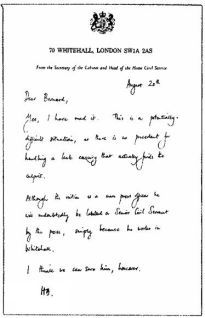 70 WHITEHALL, LONDON SW1A 2AS
From the Secretary of the Cabinet and Head of the Home Civil Service
August 20th
Dear Bernard,
Yes, I have read it. This is a potentially
difficult situation, as there is no precedent for
handling a leak enquiry that actually finds the
culprit.
Although the victim is a mere press officer he
will undoubtedly be labelled a Senior Civil Servant
by the press, simply because he works in
Whitehall.
I think we can save him, however.
HA.